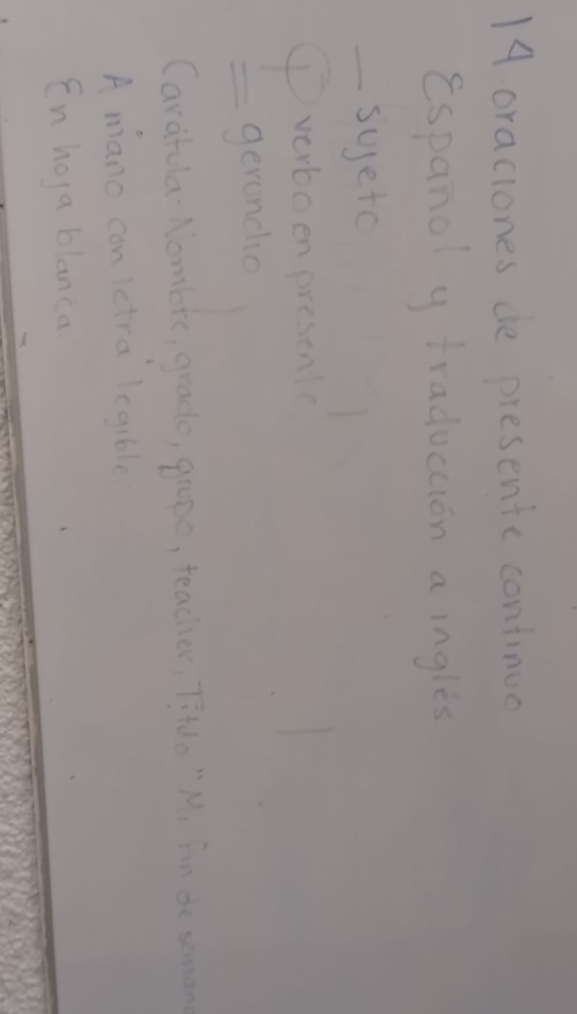 14 oraciones de presente continuo
Español y traducción a inglés
— sujeto
verbo en presente
= gerundio
Carátula: Nombre, grado, grupo, teacher, Título "Mi fin de semana
A mano con letra legible.
En hoja blanca.